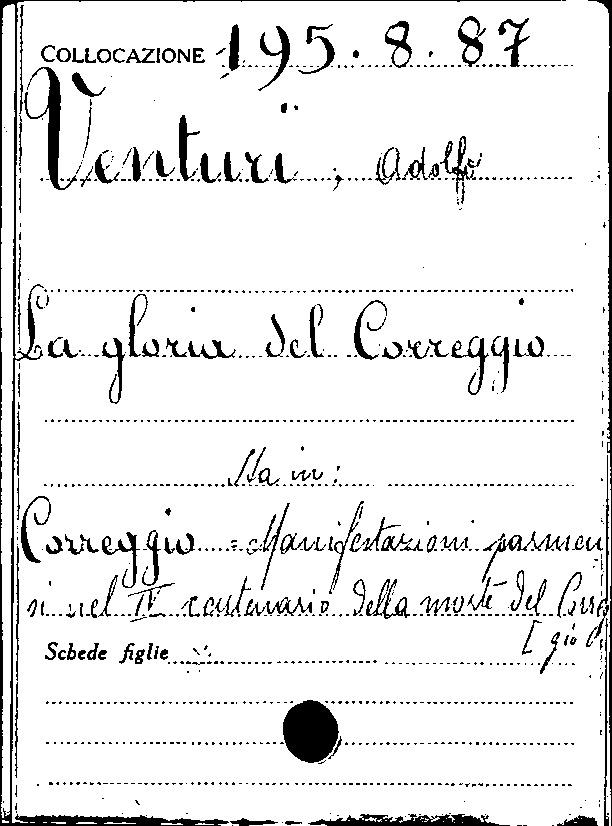 COLLOCAZIONE 195.8.87
Venturi, Adolfo
La gloria del Correggio
Sta in:
Correggio = Manifestazioni parmen
si nel IV centenario della morte del Correg
[gio
Schede figlie